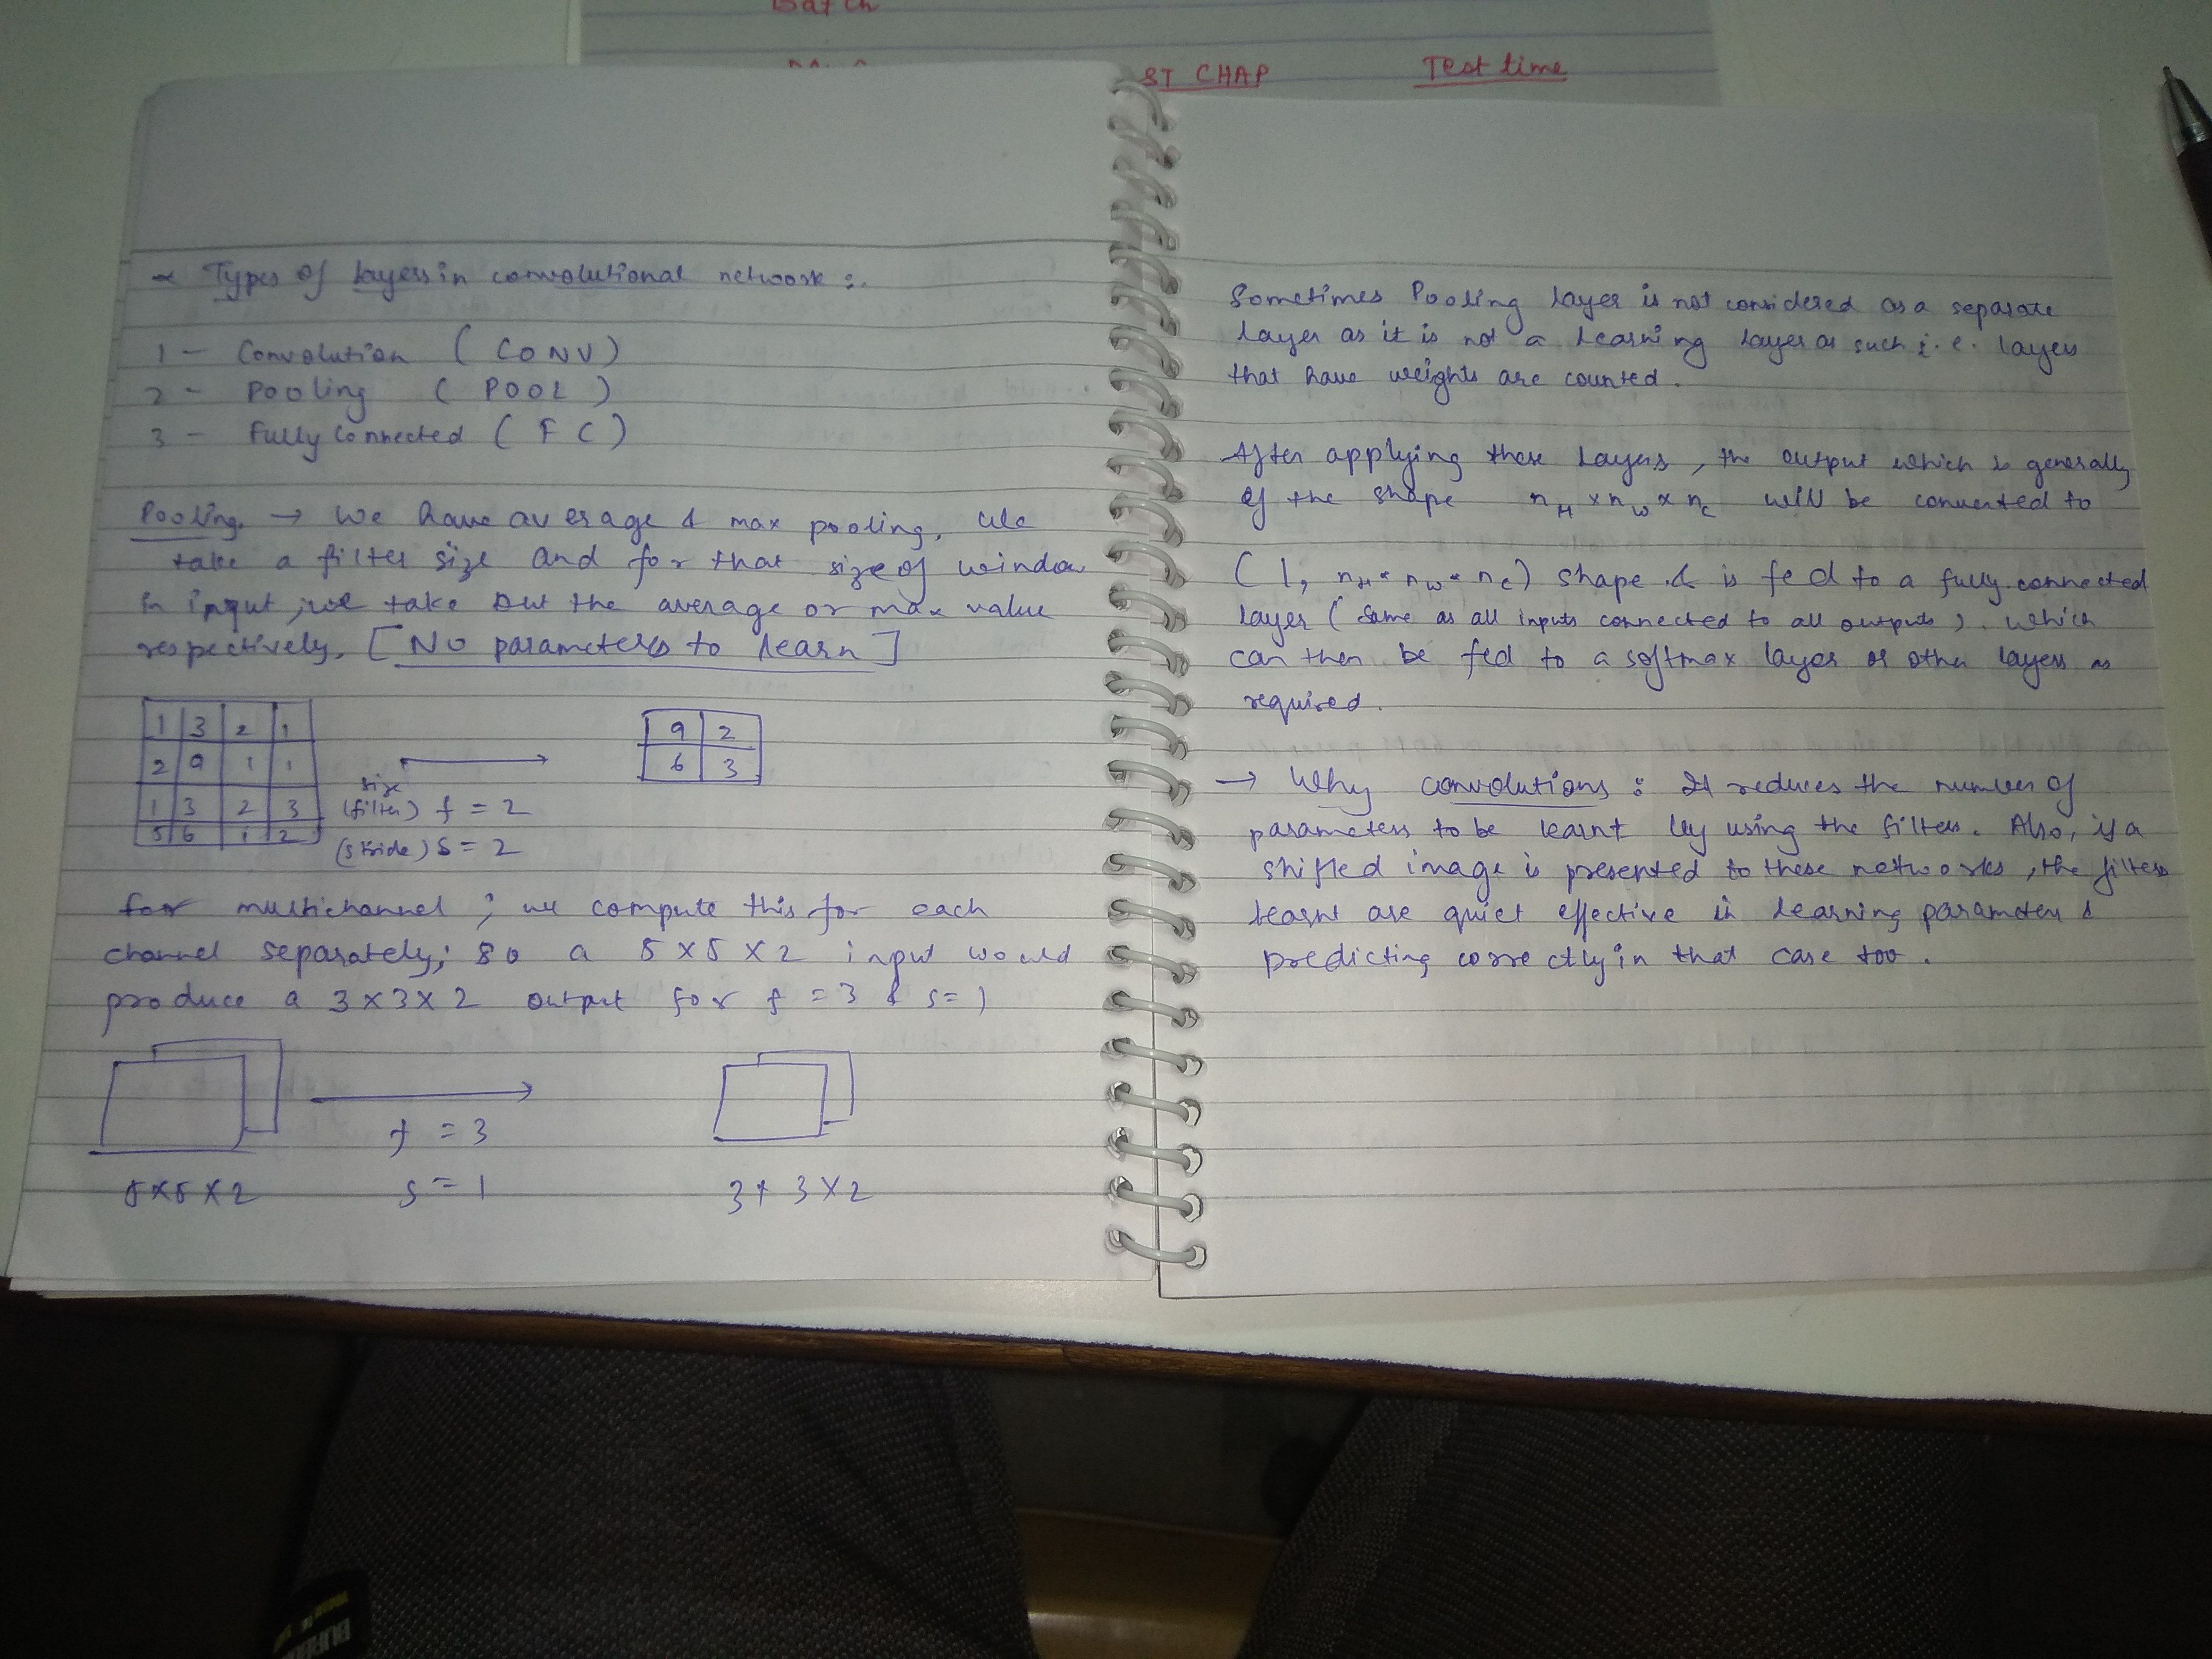 Batch
ST CHAP
Test time
Types of layers in convolutional network :.
1 - Convolution ( CONV )
2 - Pooling ( POOL )
3 - Fully Connected ( F C )
Pooling. → We have average & max pooling. We
take a filter size and for that size of window
in input, we take out the average or max value
respectively. [ No parameters to learn ]
1 3 2 1
2 9 1 1
1 3 2 3
5 6 1 2
size
(filter) f = 2
(stride) s = 2
9 2
6 3
for multichannel ; we compute this for each
channel separately; so a 5 x 5 x 2 input would
produce a 3 x 3 x 2 output for f = 3 & s = 1
f = 3
s = 1
5 x 5 x 2
3 x 3 x 2
Sometimes Pooling layer is not considered as a separate
layer as it is not a learning layer as such i.e. layers
that have weights are counted.
After applying these layers, the output which is generally
of the shape n_H x n_W x n_C will be converted to
( 1, n_H * n_W * n_C ) shape & is fed to a fully connected
layer ( same as all inputs connected to all outputs ). which
can then be fed to a softmax layer or other layers as
required.
→ Why convolutions : It reduces the number of
parameters to be learnt by using the filters. Also, if a
shifted image is presented to these networks, the filters
learnt are quiet effective in learning parameters &
predicting correctly in that case too.